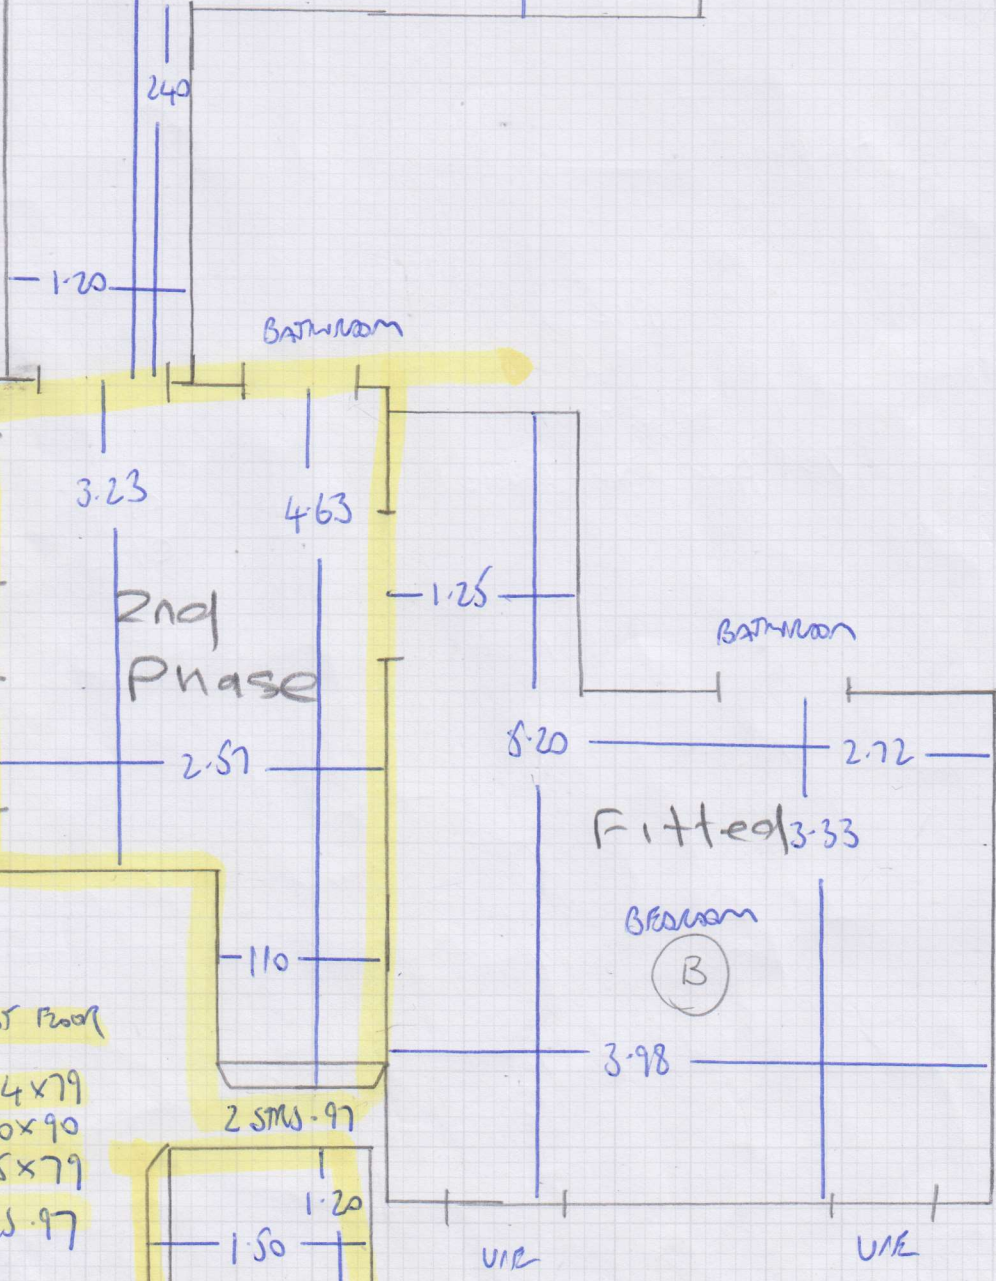 240
1.20
BATHROOM
3.23
4.63
2nd
Phase
1.25
BATHROOM
2.57
5.20
2.72
Fitted
3.33
BEDROOM
B
110
3.98
ST FLOOR
4x79
0x90
5x79
S.97
2 STRS.97
1.20
1.50